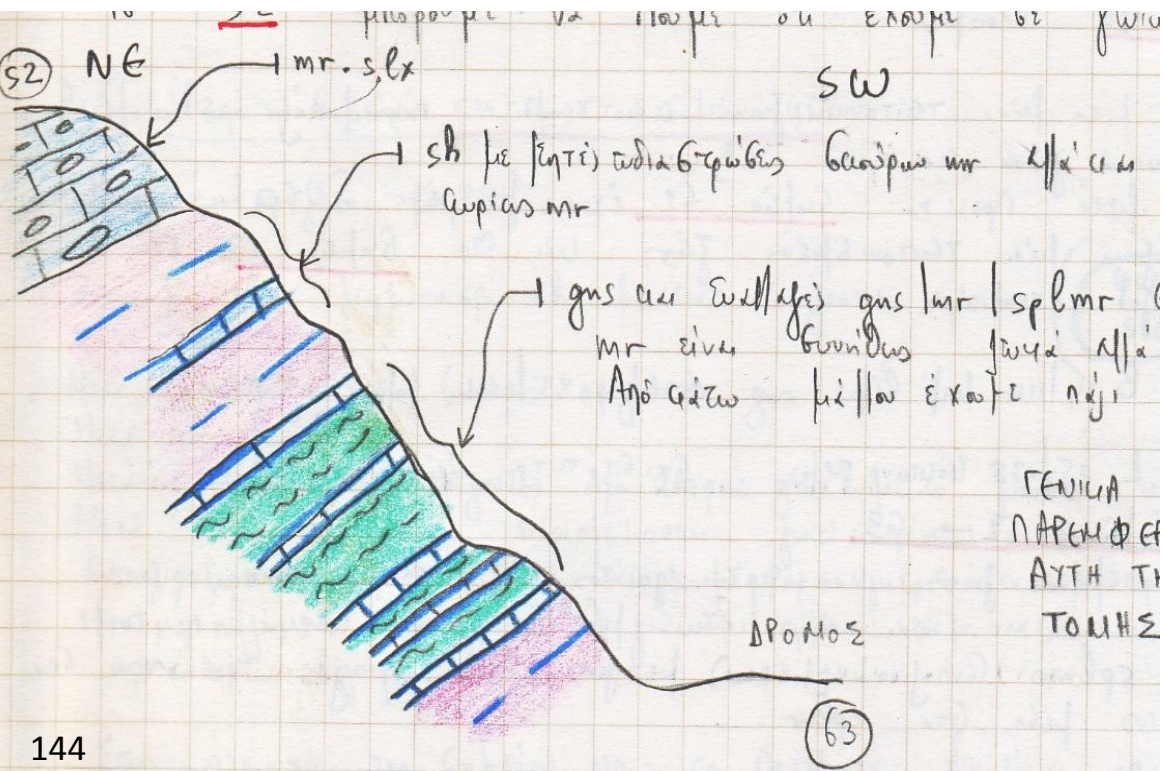 52 μπορούμε να πούμε ότι έχουμε σε
52 NE mr. slx
SW
sh με λεπτές ενδιαστρώσεις σκούρων mr αλλά και
κυρίως mr
gns και εναλλαγές gns / mr / splmr
mr είναι συνήθως λευκά αλλά
Από κάτω μάλλον έχουμε πάλι
ΓΕΝΙΚΑ
ΠΑΡΕΜΦΕΡ
ΑΥΤΗ ΤΗ
ΤΟΜΗΣ
ΔΡΟΜΟΣ
63
144